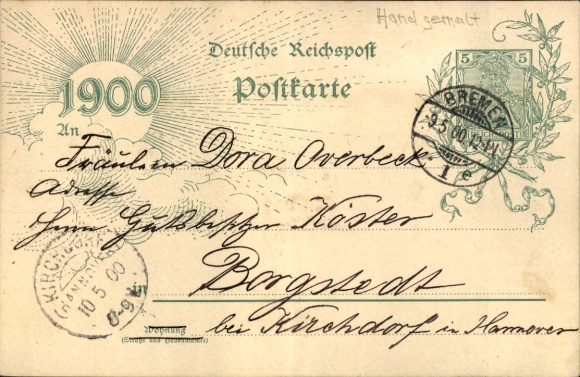 Hand gemalt
Deutsche Reichspost
Postkarte
1900
5 5
BREMEN
9.5.00.12-1N
1 e
An
Fräulein Dora Overbeck
Adresse
Herrn Gutsbesitzer Köster
KIRCHDORF
(HANNOVER)
10 5 00
8-9V
in Borgstedt
bei Kirchdorf in Hannover
Wohnung
(Straße und Hausnummer)